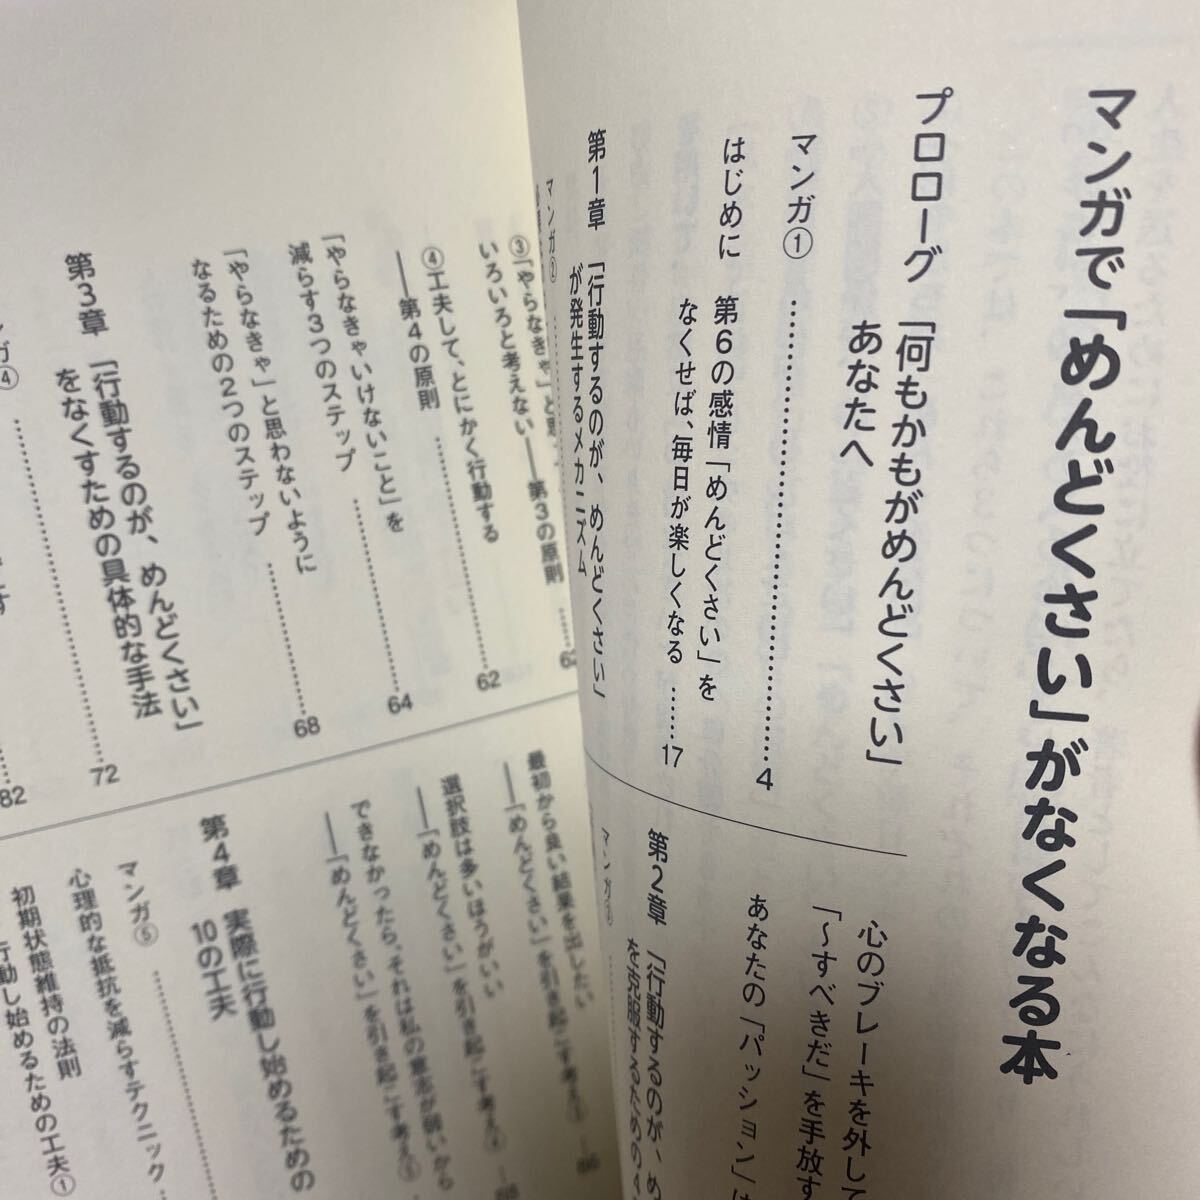 マンガで「めんどくさい」がなくなる本
プロローグ 「何もかもがめんどくさい」
あなたへ
マンガ① …………………… 4
はじめに 第6の感情「めんどくさい」を
なくせば、毎日が楽しくなる …… 17
第1章 「行動するのが、めんどくさい」
が発生するメカニズム
マンガ②
心のブレーキを外して
「〜すべきだ」を手放す
あなたの「パッション」は
第2章 「行動するのが、め
を克服するための4
マンガ③
③「やらなきゃ」と思
いろいろと考えない――第3の原則 …… 62
④工夫して、とにかく行動する
――第4の原則 …… 62
「やらなきゃいけないこと」を
減らす3つのステップ …… 64
「やらなきゃ」と思わないように
なるための2つのステップ …… 68
第3章 「行動するのが、めんどくさい」
をなくすための具体的な手法 …… 72
ガ④
82
最初から良い結果を出したい
――「めんどくさい」を引き起こす考え
選択肢は多いほうがいい
――「めんどくさい」を引き起こす考え
できなかったら、それは私の意志が弱いから
――「めんどくさい」を引き起こす考え
第4章 実際に行動し始めるための
10の工夫
マンガ⑤
心理的な抵抗を減らすテクニック
初期状態維持の法則
行動し始めるための工夫①